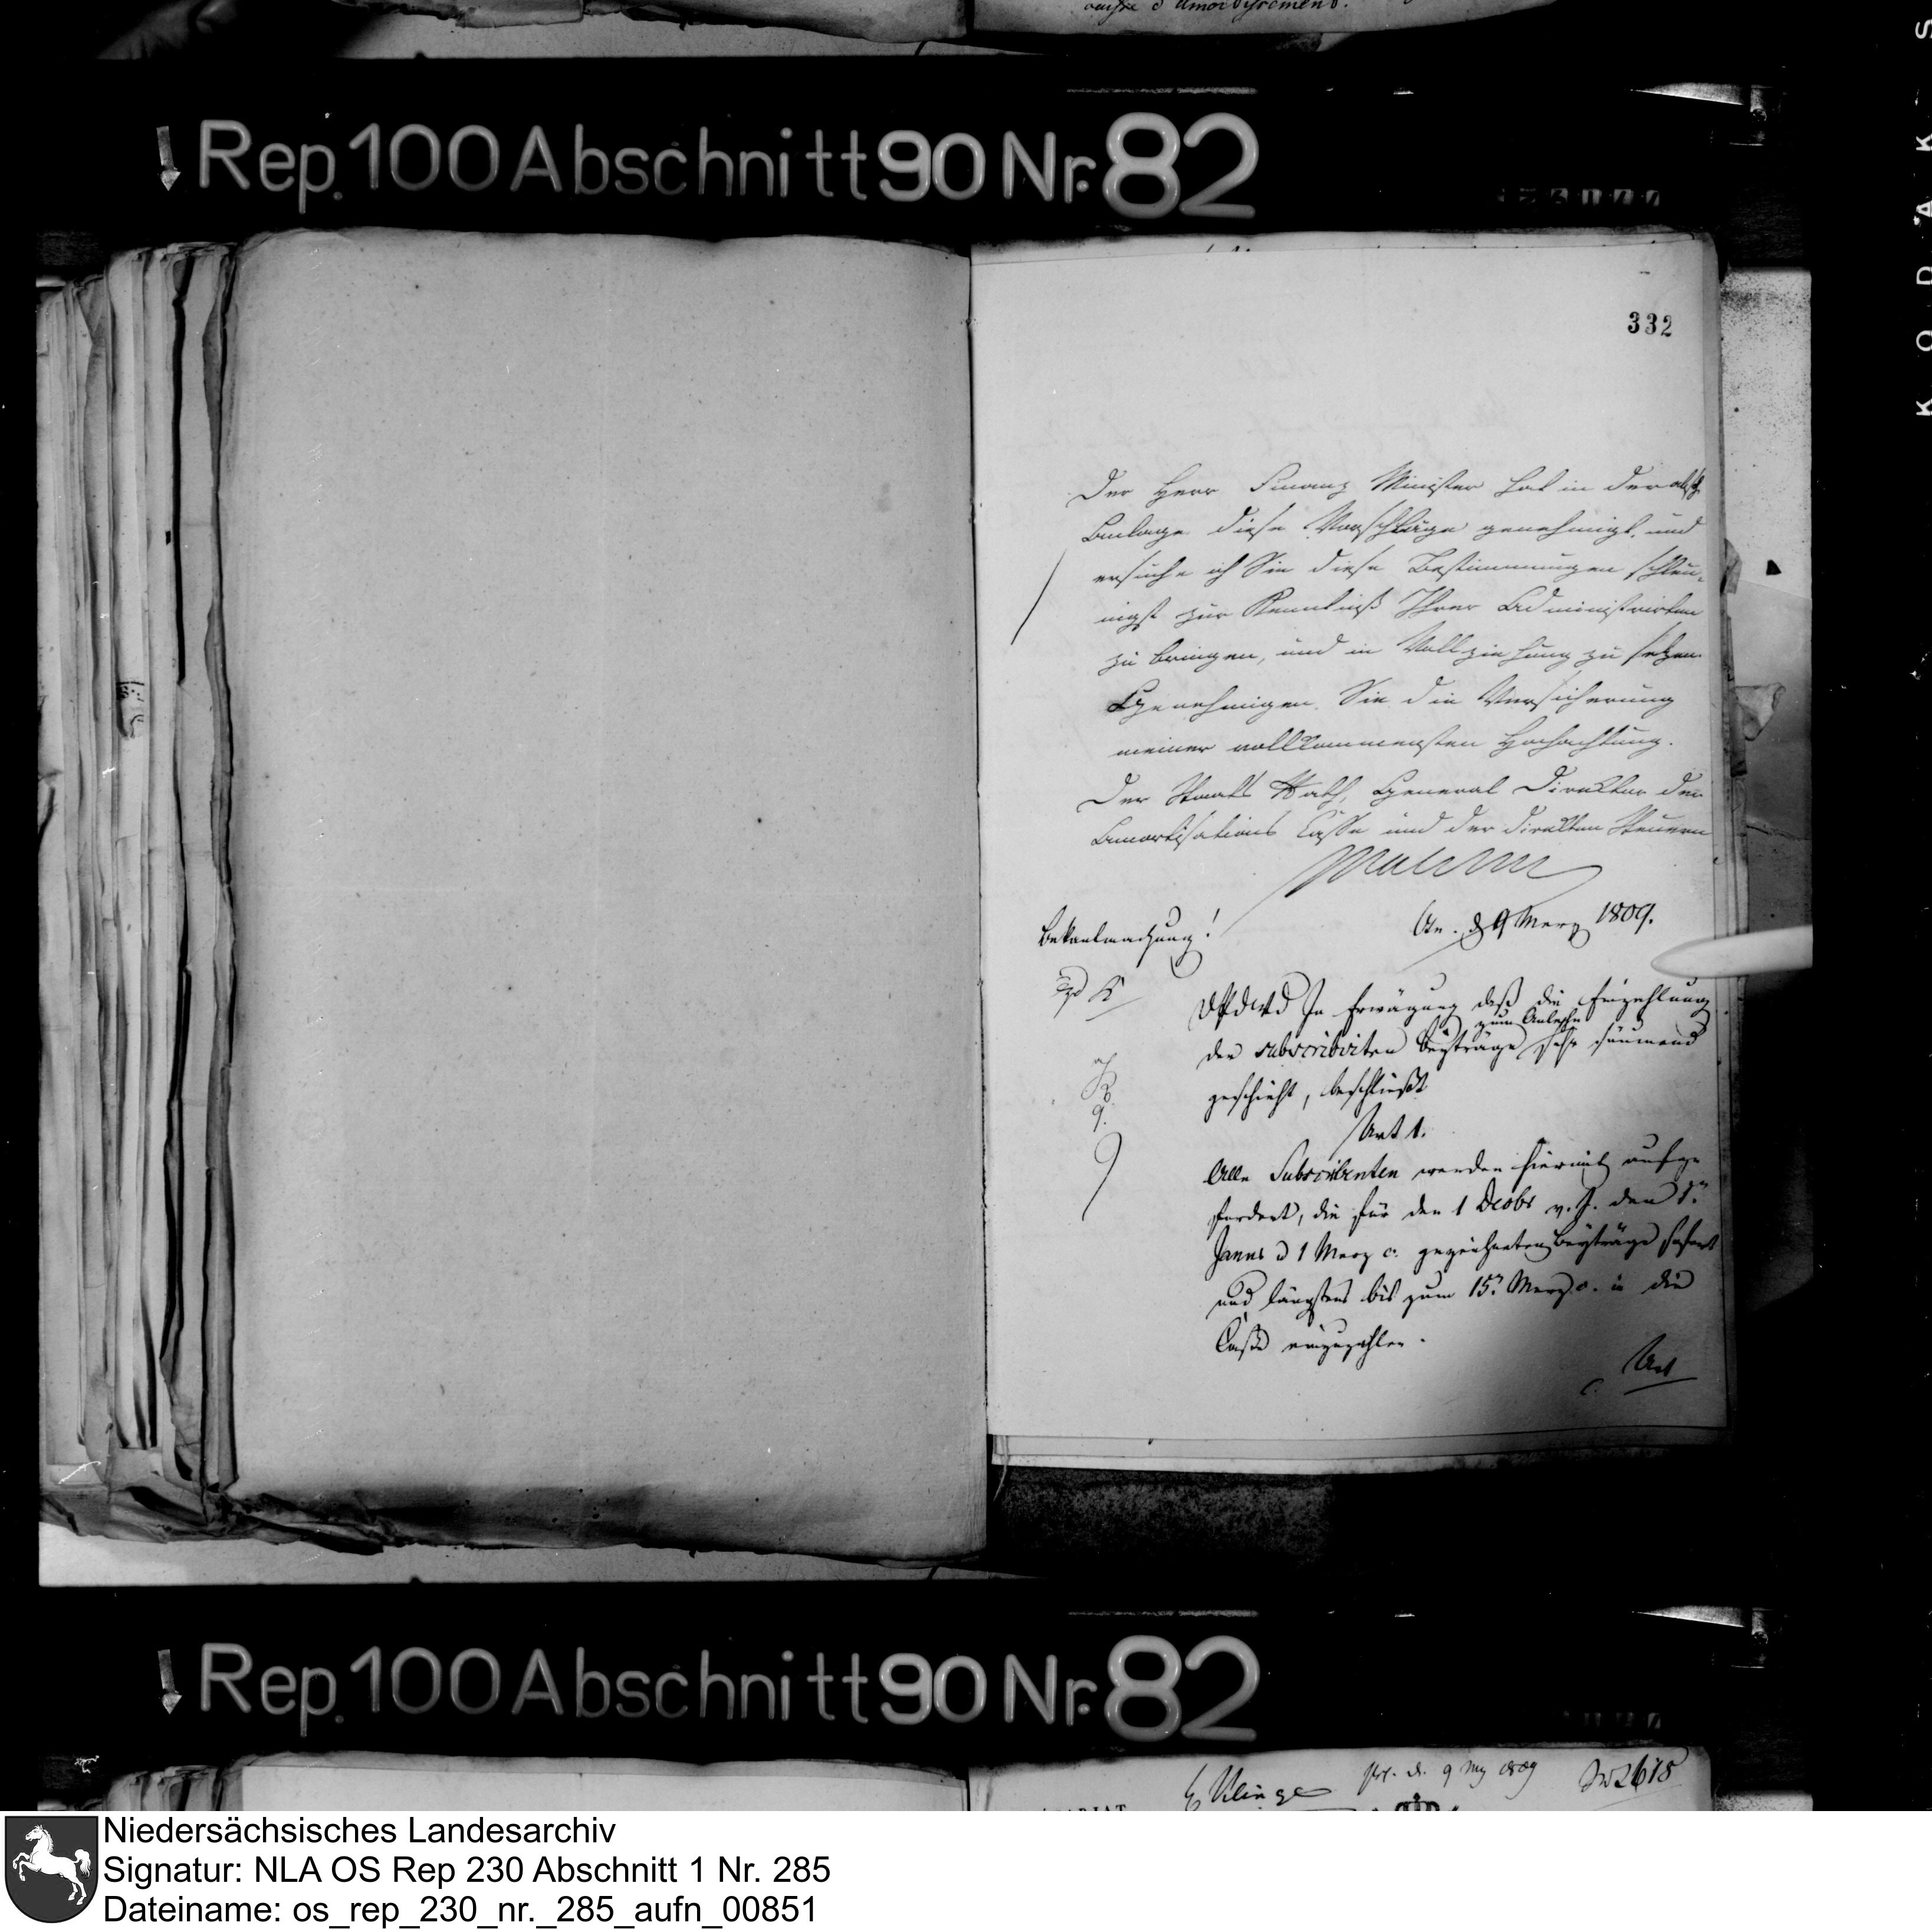 Rep. 100 Abschnitt 90 Nr. 82
332
Der Herr Finanz Minister hat in der
Anlage diese Vorschläge genehmigt, und
ersuche ich Sie diese Bestimmungen schleu-
nigst zur Kenntniß Ihrer Administrirten
zu bringen, und in Vollziehung zu setzen.
Genehmigen Sie die Versicherung
meiner vollkommensten Hochachtung.
Der Staats Rath, General Direktor der
Amortisations Casse und der direkten Steuern
Malchus
d 9 Merz 1809.
Bekantmachung!
In Erwägung daß die Einzahlung
der subscribirten Beyträge zum Anlehn sehr säumend
geschieht, beschließt
Art 1.
Alle Subscribenten werden hiermit aufge
fordert, die für den 1 Decbr v. J. den 1.
Janus d 1 Merz c. gezeichneten Beyträge sofort
und längstens bis zum 15. Merz c. in die
Casse einzuzahlen.
Art
Rep. 100 Abschnitt 90 Nr. 82
d. 9 Mrz 1809
2618
KODAK S
Niedersächsisches Landesarchiv
Signatur: NLA OS Rep 230 Abschnitt 1 Nr. 285
Dateiname: os_rep_230_nr._285_aufn_00851